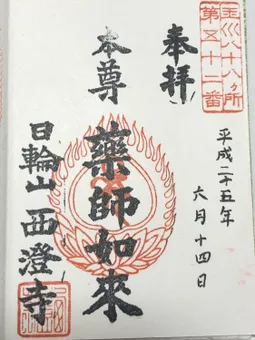 玉川八十八ヶ所
第五十二番
奉拝
平成二十五年
六月十四日
本尊
薬師如來
日輪山西澄寺